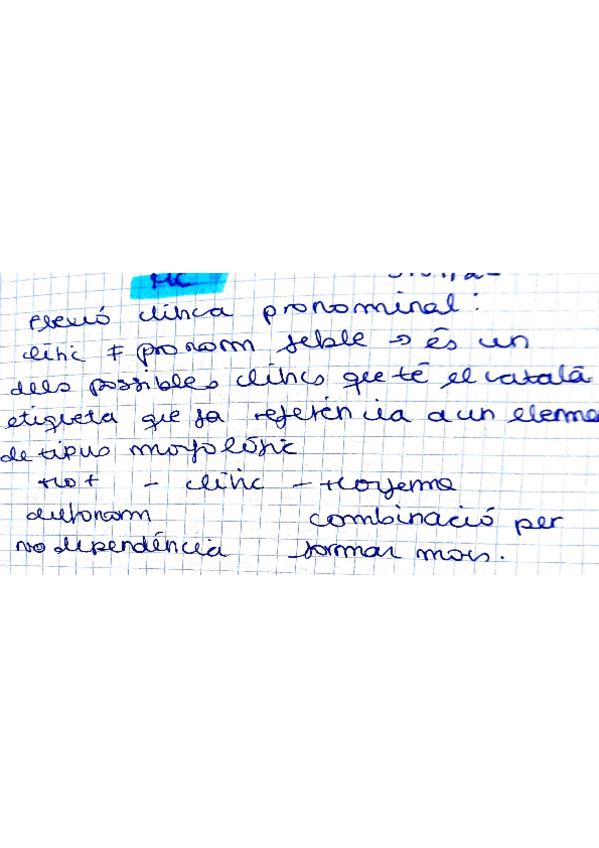 Flexió clítica pronominal:
clític ≠ pronom feble → és un
dels possibles clítics que té el català
etiqueta que fa referència a un eleme
de tipus morfològic
mot - clític - morfema
autònom combinació per
no dependència formar mots.